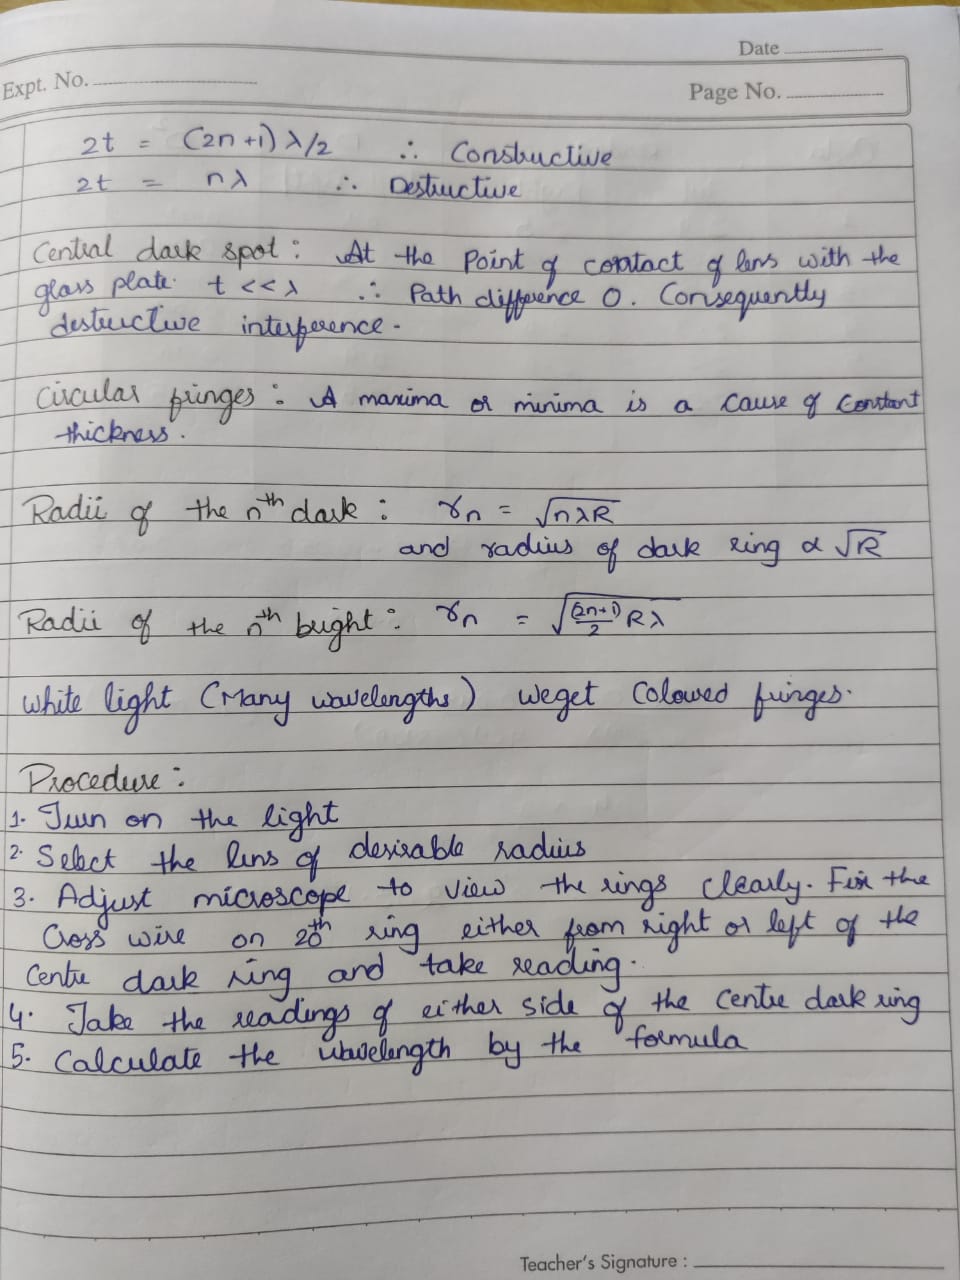 Date
Expt. No.
Page No.
2t = (2n+1) λ/2 ∴ Constructive
2t = nλ ∴ Destructive
Central dark spot : At the Point of contact of lens with the
glass plate. t << λ ∴ Path difference 0. Consequently
destructive interference.
Circular fringes : A maxima or minima is a cause of constant
thickness.
Radii of the nth dark : rn = √nλR
and radius of dark ring α √R
Radii of the nth bright : rn = √(2n+1)/2 Rλ
White light (Many wavelengths) we get Coloured fringes.
Procedure :
1. Turn on the light
2. Select the lens of desirable radius
3. Adjust microscope to view the rings clearly. Fix the
Cross wire on 20th ring either from right or left of the
Centre dark ring and take reading.
4. Take the readings of either side of the centre dark ring
5. Calculate the wavelength by the formula
Teacher's Signature :